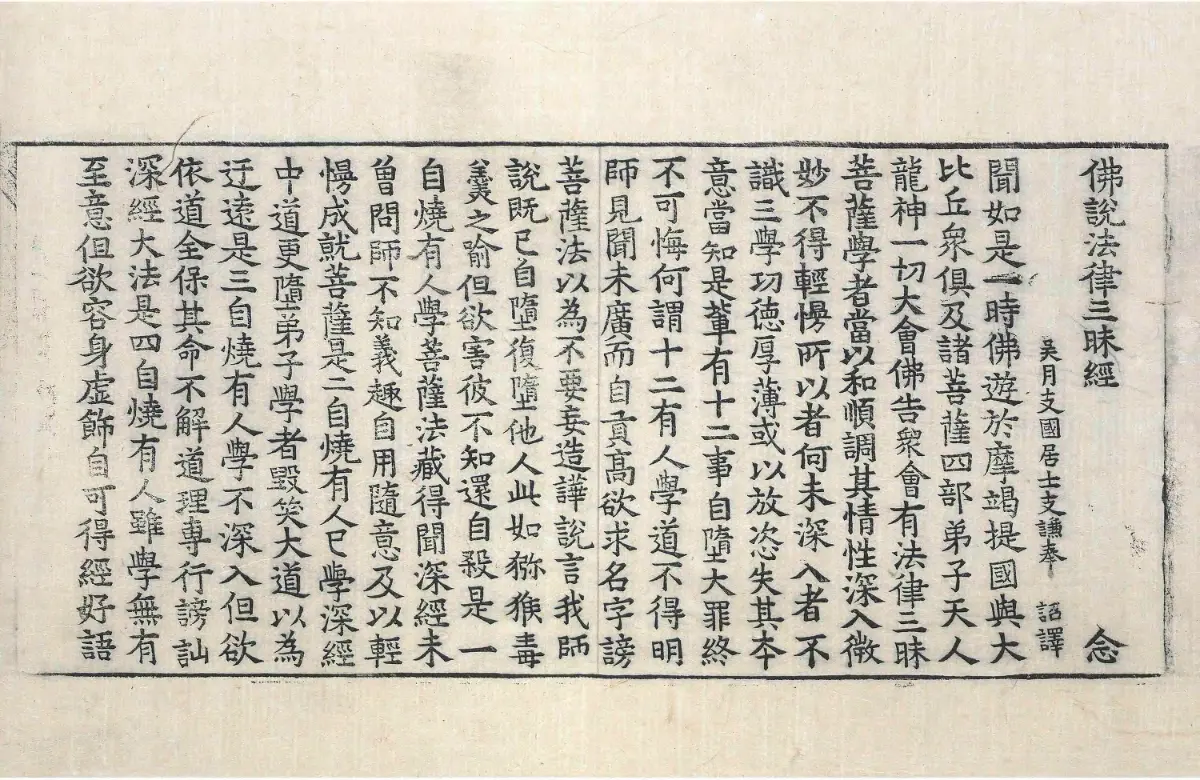 佛說法律三昧經 念
吳月支國居士支謙奉 詔譯
聞如是一時佛遊於摩竭提國與大
比丘衆俱及諸菩薩四部弟子天人
龍神一切大會佛告衆會有法律三昧
菩薩學者當以和順調其情性深入微
妙不得輕慢所以者何未深入者不
識三學功德厚薄或以放恣失其本
意當知是軰有十二事自墮大罪終
不可悔何謂十二有人學道不得明
師見聞未廣而自貢高欲求名字謗
菩薩法以為不要妄造譁說言我師
說既已自墮復墮他人此如猕猴毒
䕠之喻但欲害彼不知還自殺是一
自燒有人學菩薩法藏得聞深經未
曾問師不知義趣自用隨意及以輕
慢成就菩薩是二自燒有人已學深經
中道更墮弟子學者毀笑大道以為
迂遠是三自燒有人學不深入但欲
依道全保其命不解道理專行謗訕
深經大法是四自燒有人雖學無有
至意但欲容身虛飾自可得經好語